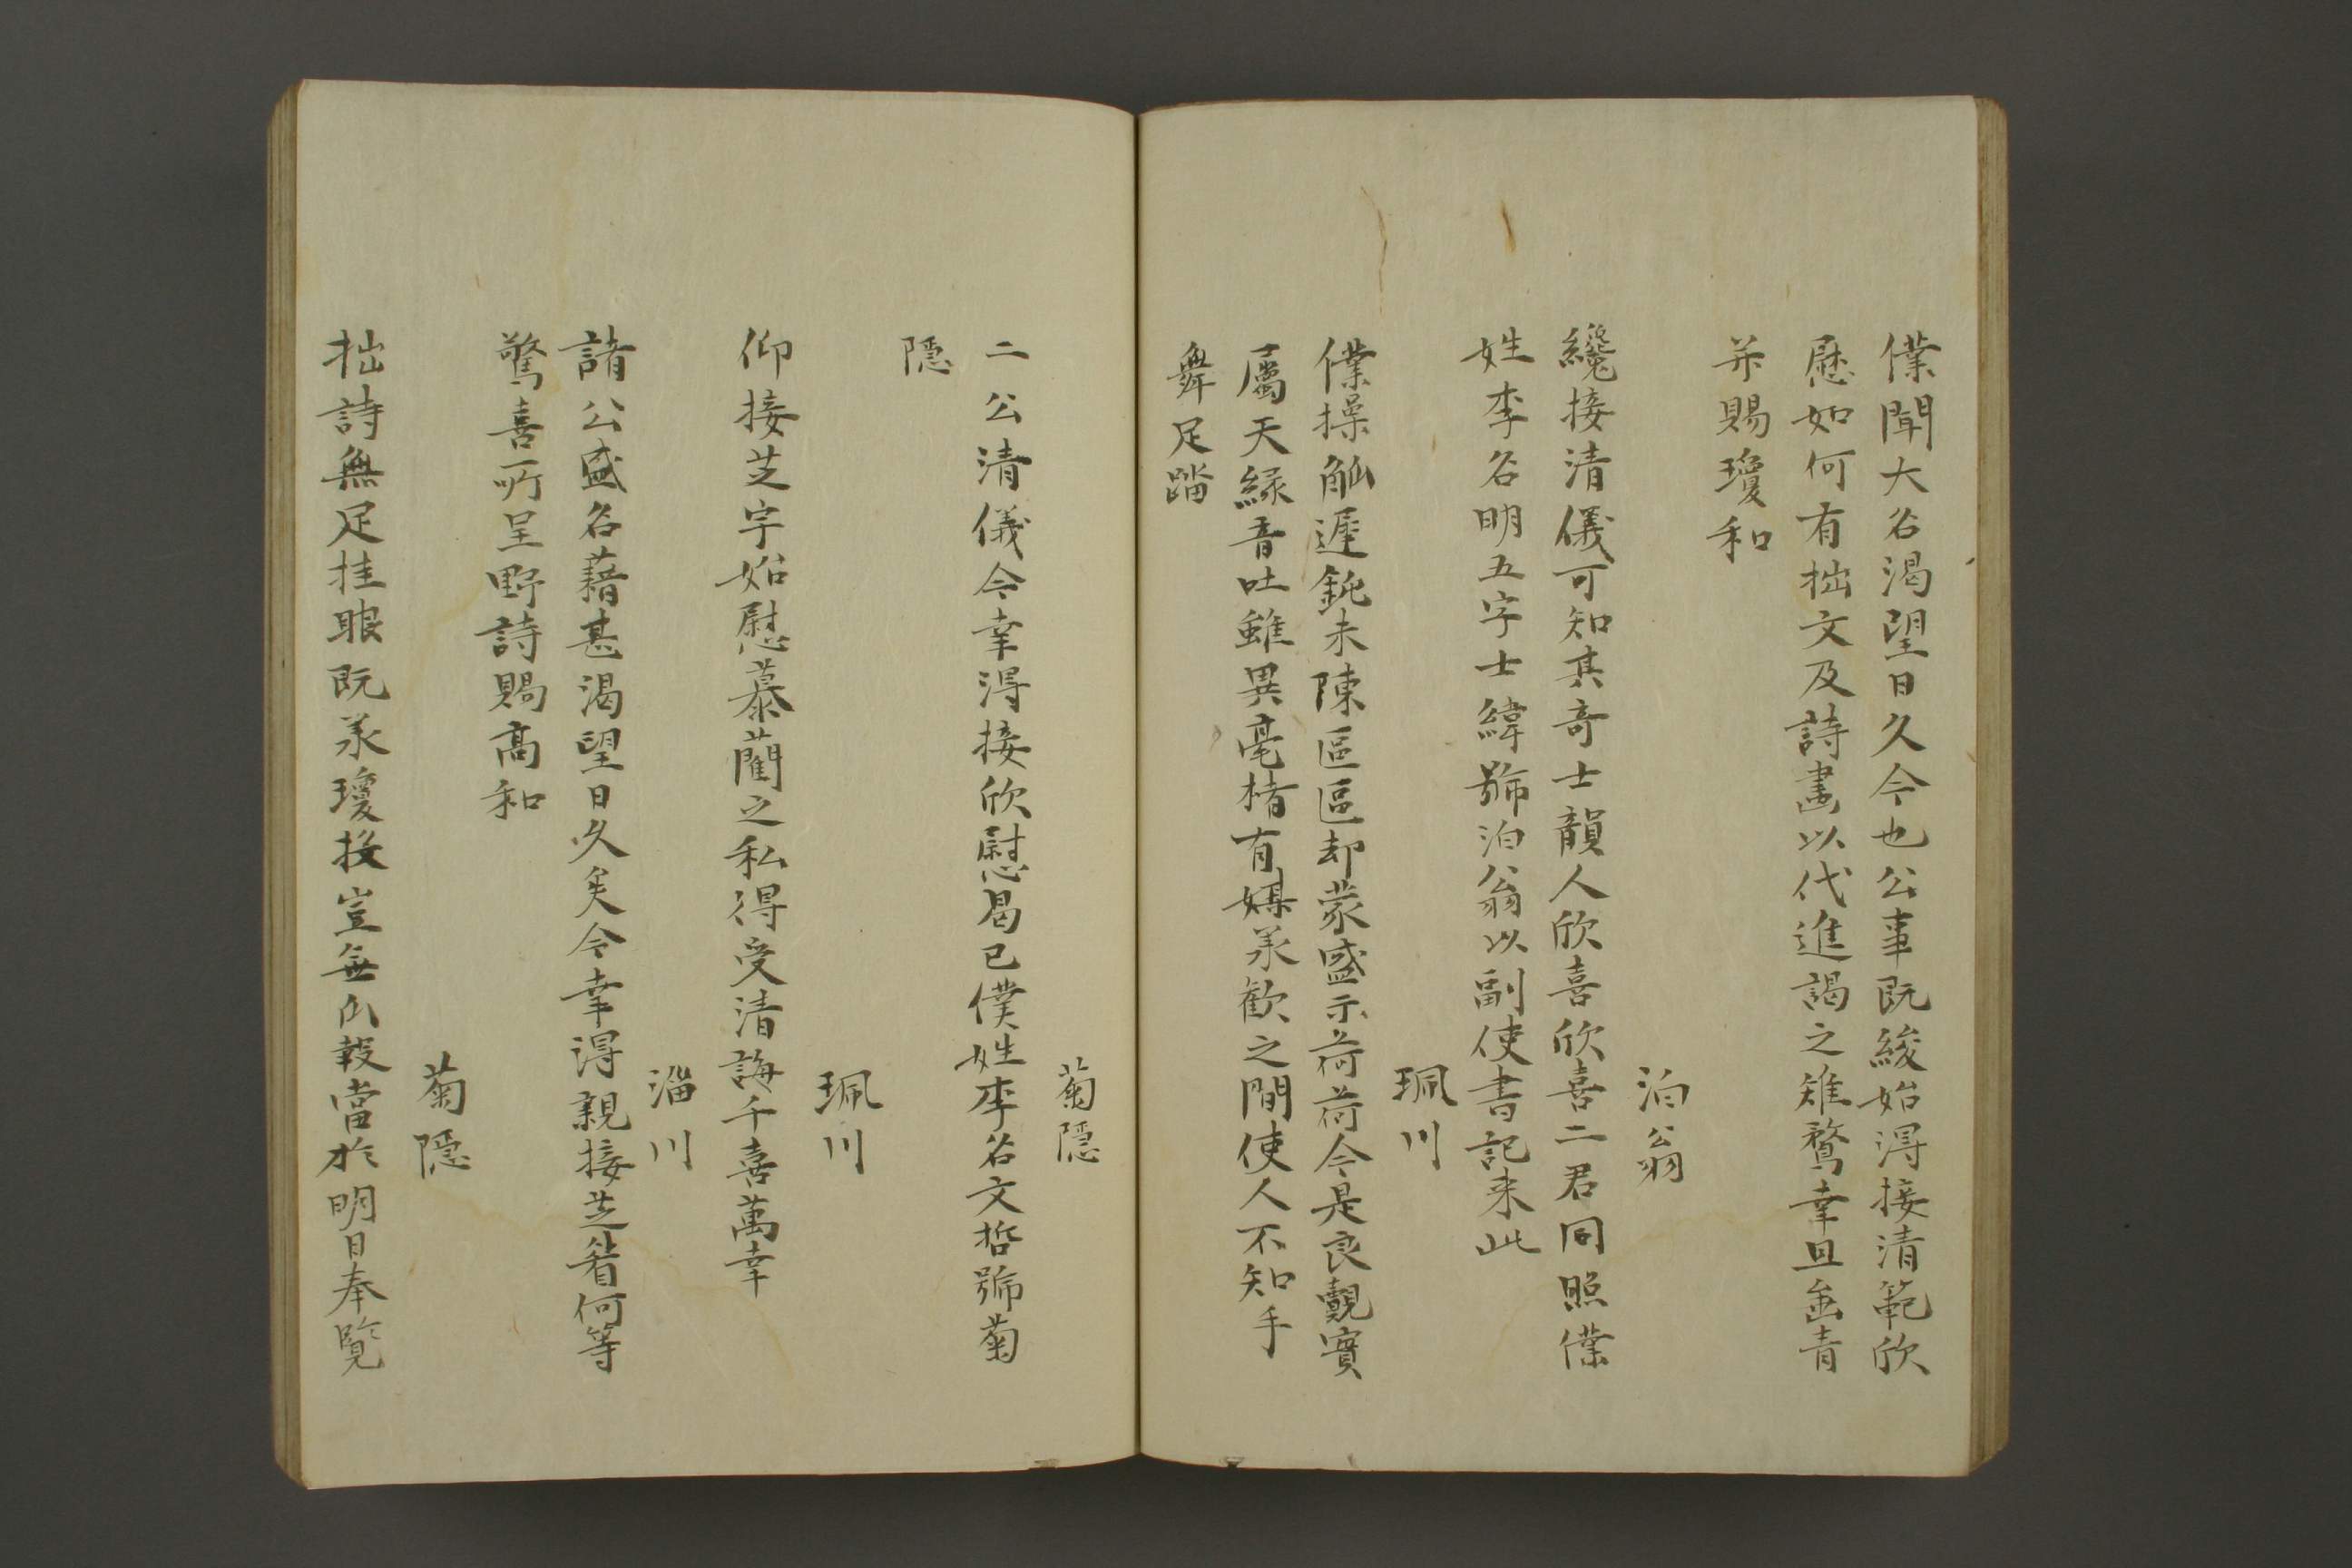 僕聞大名渴望日久今也公事既緩始得接清範欣
慰如何有拙文及詩畫以代進謁之雉鶩幸且垂青
并賜瓊和
泊翁
纔接清儀可知其奇士韻人欣喜欣喜二君同照僕
姓李名明五字士緯號泊翁以副使書記来此
珮川
僕操觚遲鈍未陳區區却蒙盛示荷荷今是良覿實
屬天緣音吐雖異毫楮有媒承歡之間使人不知手
舞足蹈
菊隱
二公清儀今幸得接欣慰曷已僕姓李名文哲號菊
隱
珮川
仰接芝宇始慰慕藺之私得受清誨千喜萬幸
淄川
諸公盛名藉甚渴望日久矣今幸得親接芝眉何等
驚喜所呈野詩賜高和
菊隱
拙詩無足挂眼既承瓊投豈無仄報當於明日奉覧